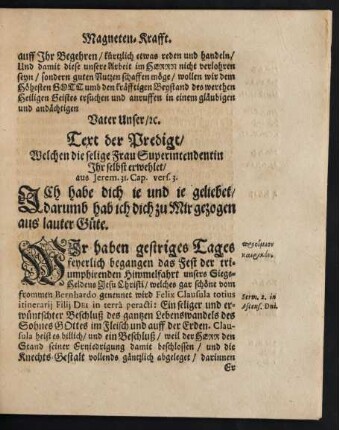 Magneten-Krafft.
auff Ihr Begehren / kürtzlich etwas reden und handeln /
Und damit diese unsere Arbeit im HErrn nicht verlohren
seyn / sondern guten Nutzen schaffen möge / wollen wir dem
Höhesten GOTT umb den kräfftigen Beystand des werthen
Heiligen Geistes ersuchen und anruffen in einem gläubigen
und andächtigen
Vater Unser / ꝛc.
Text der Predigt /
Welchen die selige Frau Superintendentin
Ihr selbst erwehlet /
aus Jerem. 31. Cap. vers. 3.
ICh habe dich ie und ie geliebet /
darumb hab ich dich zu Mir gezogen
aus lauter Güte.
WIr haben gestriges Tages
feyerlich begangen das Fest der tri-
umphirenden Himmelfahrt unsers Sieges-
Heldens JEsu Christi / welches gar schöne vom
frommen Bernhardo genennet wird Felix Clausula totius
Serm. 2. in
itinerarij Filij Dei in terrâ peracti: Ein seliger und er-
Ascens. Dni.
wünschter Beschluß des gantzen Lebenswandels des
Sohnes GOttes im Fleisch und auff der Erden. Clau-
sula heist es billich / und ein Beschluß / weil der HErr den
Stand seiner Erniedrigung damit beschlossen / und die
Knechts Gestalt vollends gäntzlich abgeleget / darinnen
Er